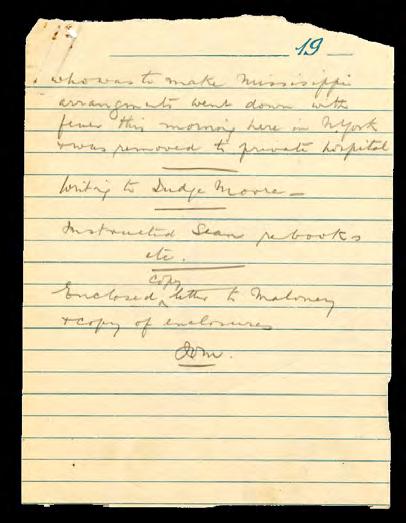 19
who was to make Mississippi
arrangments went down with
fever this morning here in NYork
+ was removed to private hospital
Writing to Judge Moore —
Instructed Sean re books
etc.
copy
Enclosed letter to Maloney
+ copy of enclosures